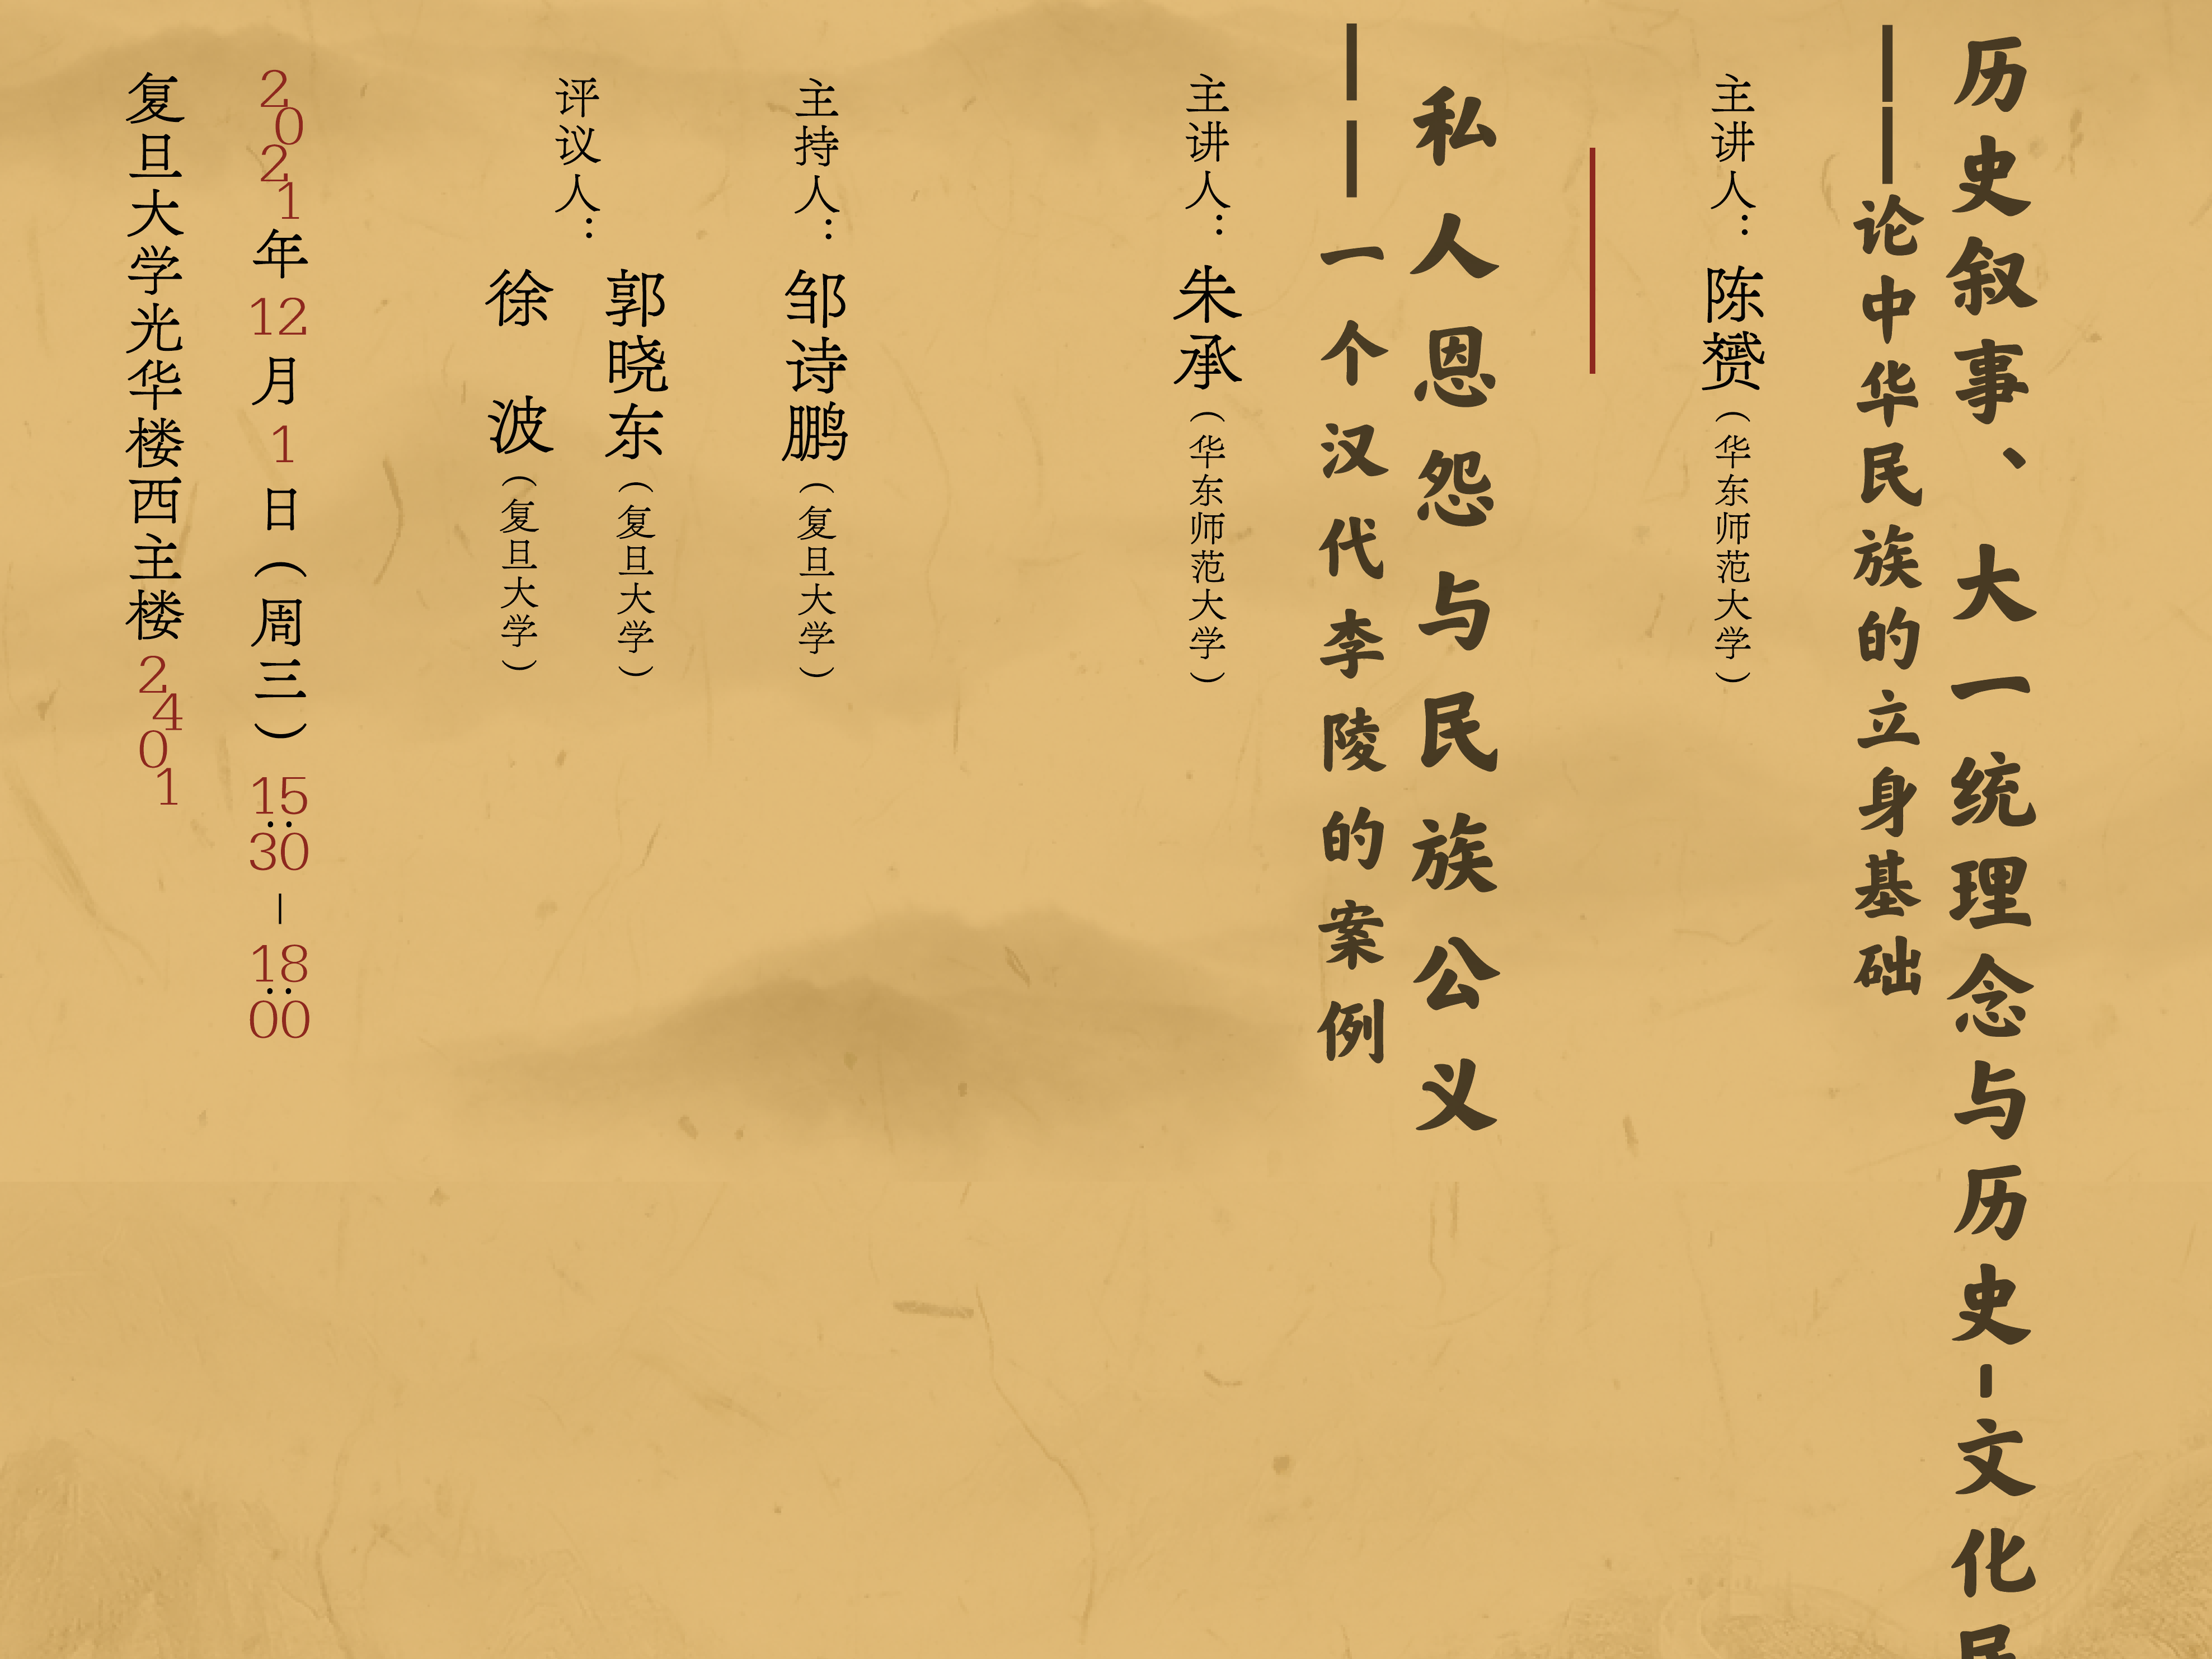 历史叙事、大一统理念与历史-文化民
——论中华民族的立身基础
主讲人：陈赟（华东师范大学）
私人恩怨与民族公义
——一个汉代李陵的案例
主讲人：朱承（华东师范大学）
主持人：邹诗鹏（复旦大学）
评议人：
郭晓东（复旦大学）
徐 波（复旦大学）
2021年12月1日（周三）15:30-18:00
复旦大学光华楼西主楼2401